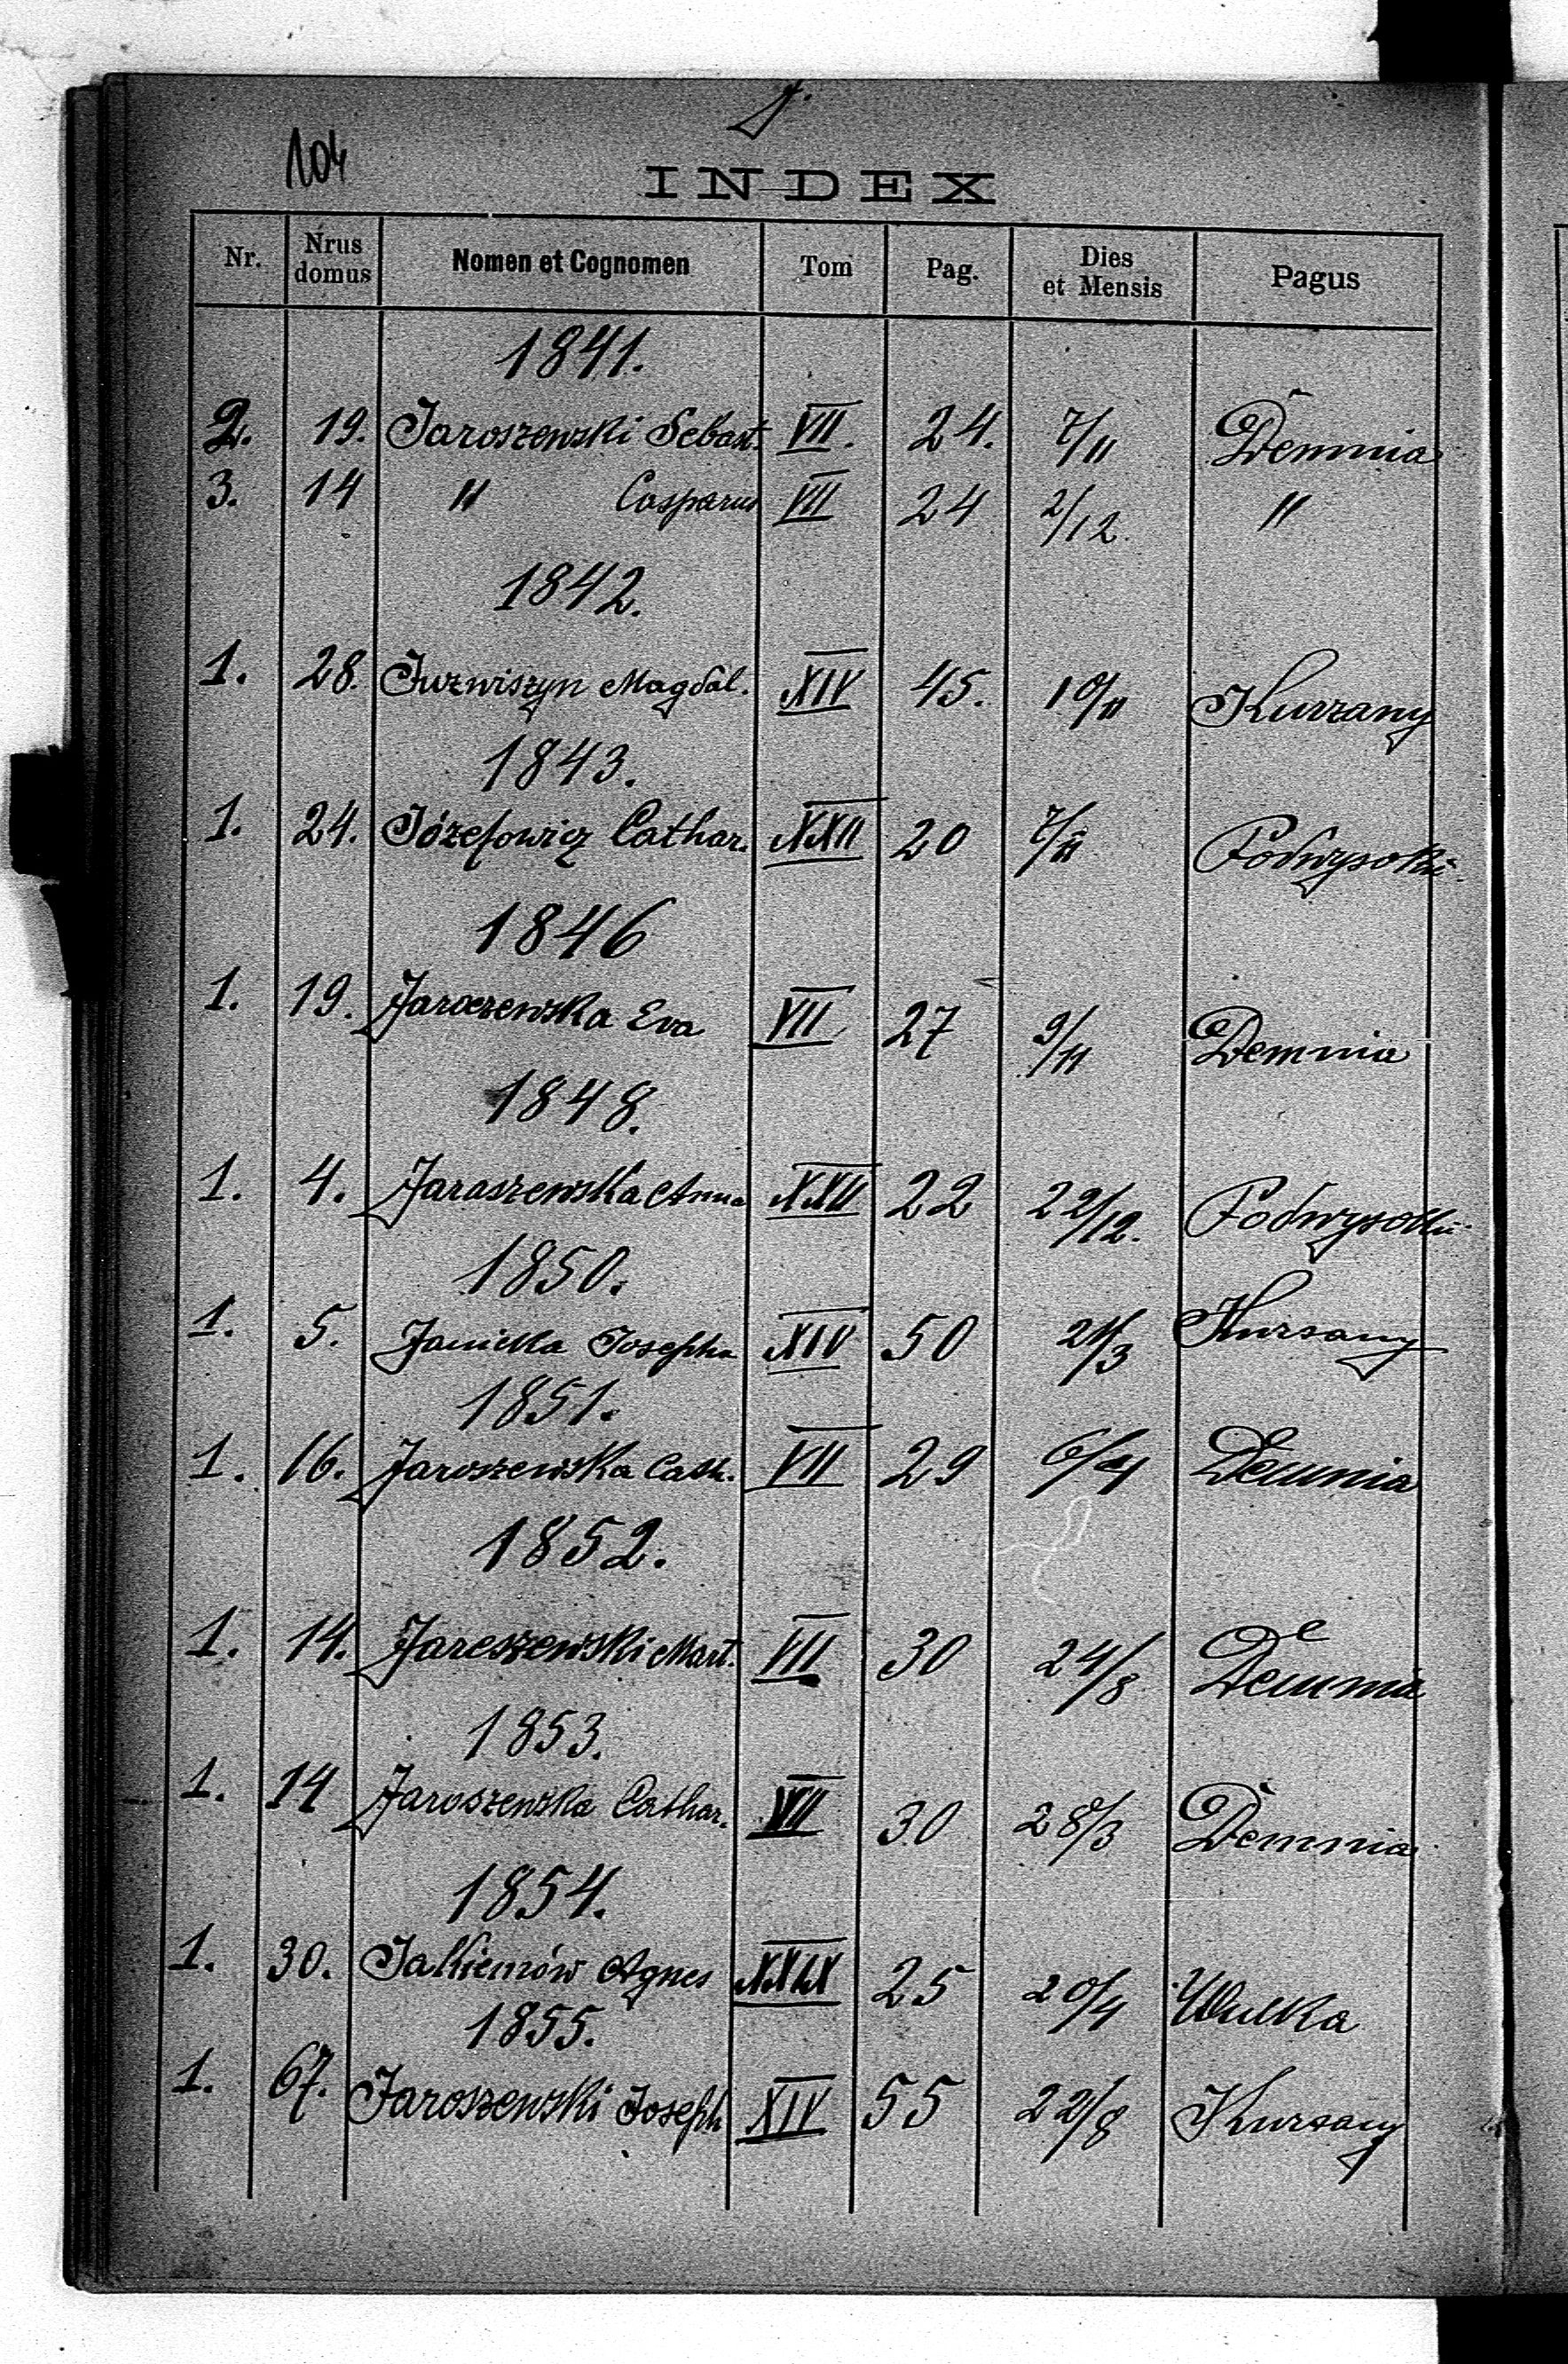 J.
104
INDEX
Nr. Nrus domus Nomen et Cognomen Tom Pag. Dies et Mensis Pagus
1841.
2. 19. Jaroszewski Sebast. VII. 24. 7/11 Demnia
3. 14 " Casparus VII 24 2/12. "
1842.
1. 28. Juzwiszyn Magdal. XIV 45. 10/11 Kurzany
1843.
1. 24. Józefowicz Cathar. XXII 20 7/11 Podwysokie
1846
1. 19. Jaroszewska Eva VII 27 9/11 Demnia
1848.
1. 4. Jaraszewska Anna XXII 22 22/12. Podwysokie
1850.
1. 5. Janicka Josepha XIV 50 21/3 Kurzany
1851.
1. 16. Jaroszewska Cath. VII 29 6/4 Demnia
1852.
1. 14. Jareszewski Mart. VII 30 24/8 Demnia
1853.
1. 14 Jaroszewska Cathar. VII 30 28/3 Demnia
1854.
1. 30. Jakiemów Agnes XXIX 25 20/4 Wulka
1855.
1. 67. Jaroszewski Joseph XIV 55 22/8 Kurzany